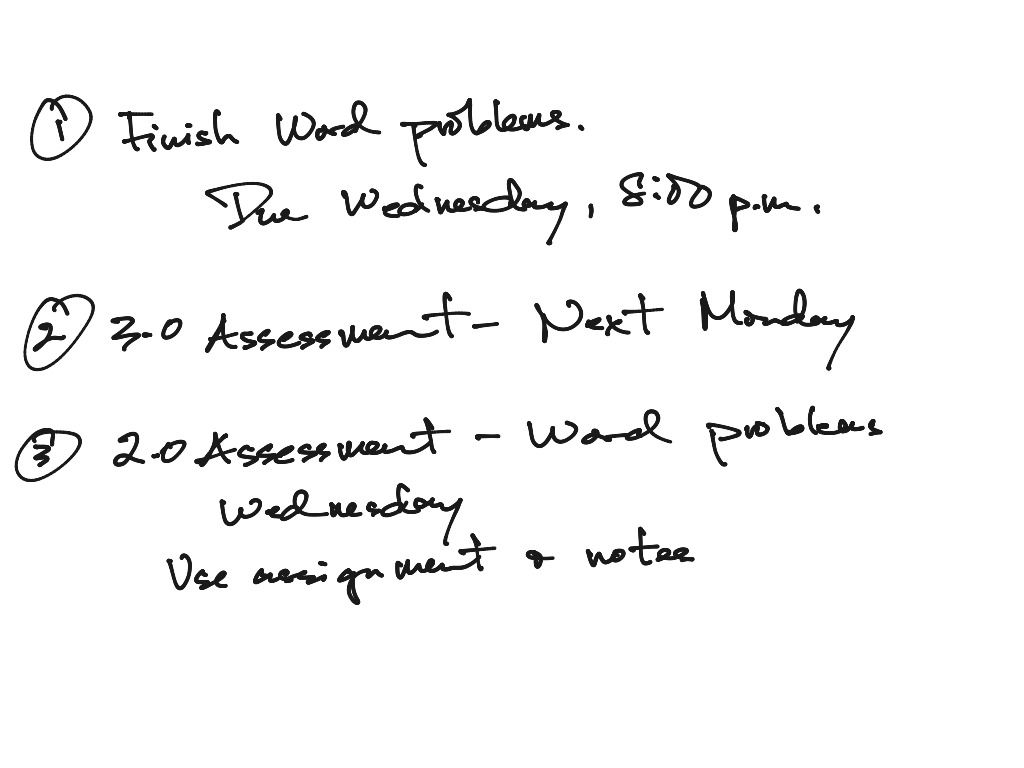 ① Finish Word problems.
Due Wednesday, 8:00 p.m.
② 3.0 Assessment - Next Monday
③ 2.0 Assessment - Word problems
Wednesday
Use assignment & notes